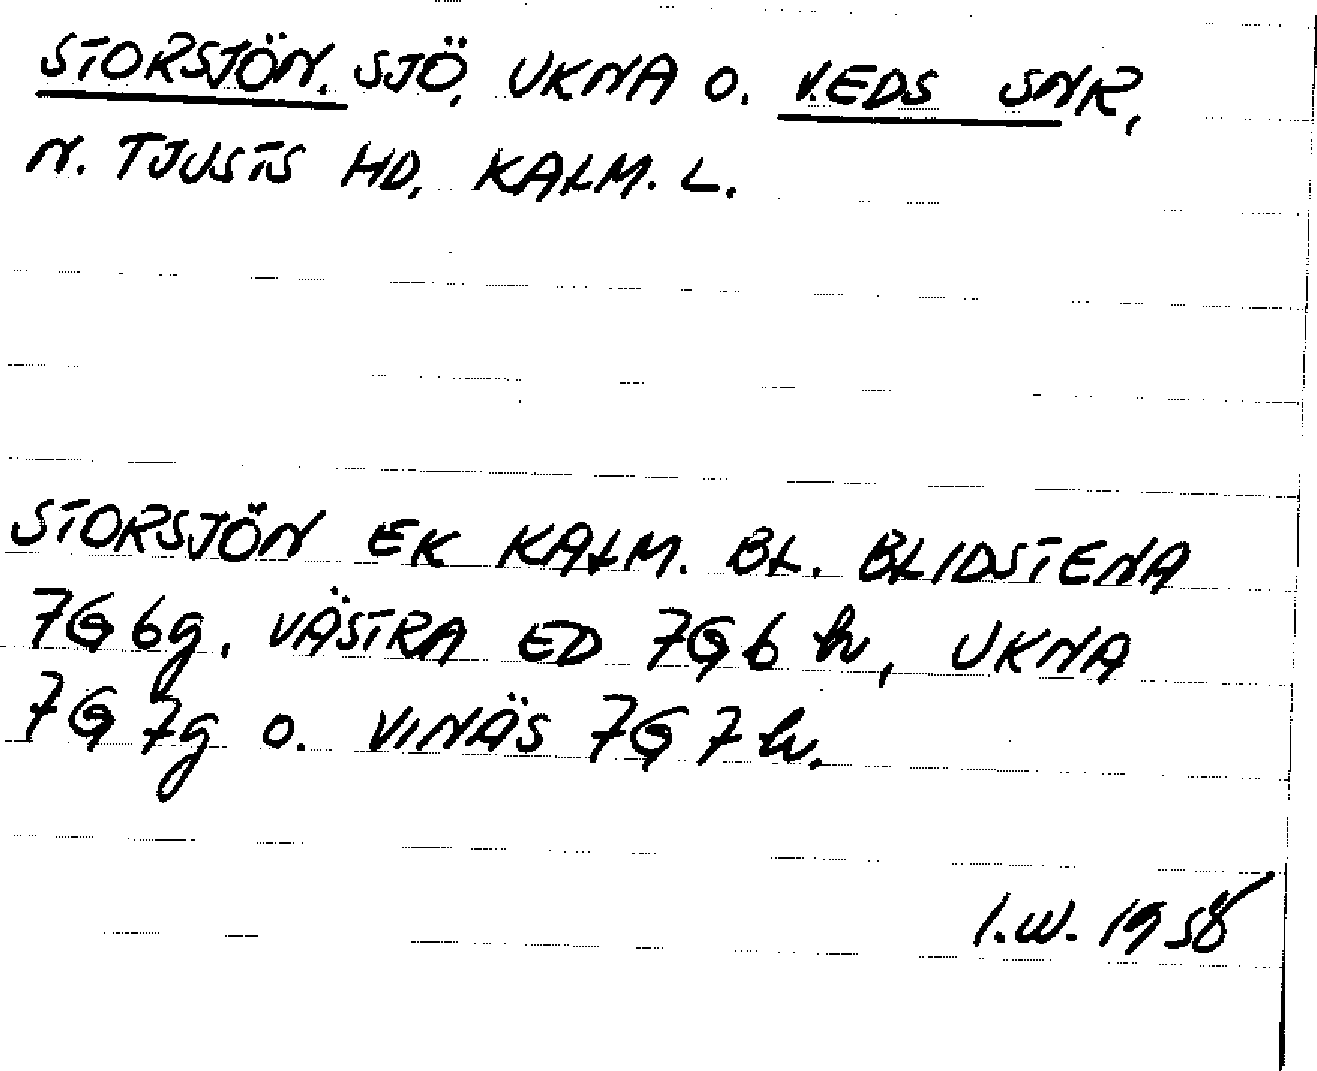 STORSJÖN. SJÖ, UKNA O. V.EDS SNR,
N. TJUSTS HD, KALM. L.
STORSJÖN EK KALM. BL. BLIDSTENA
7G 6g. VÄSTRA ED 7G 6 h, UKNA
7G 7g O. VINÄS 7G 7 h.
I.W. 1958